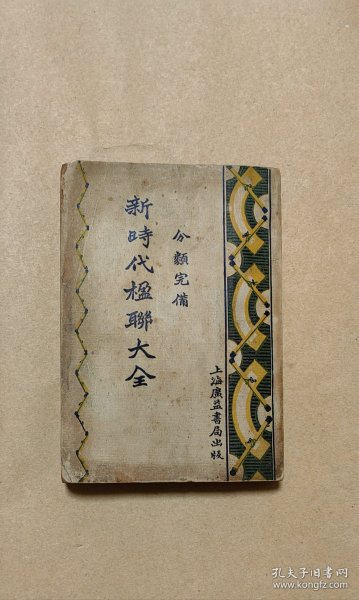 分類完備
新時代楹聯大全
上海廣益書局出版
孔夫子旧书网
www.kongfz.com